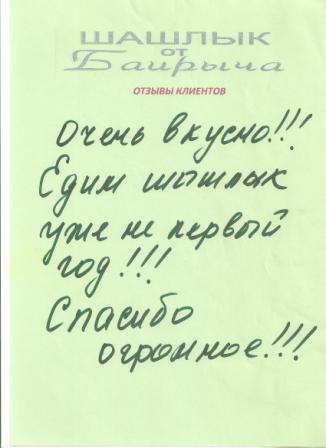 ШАШЛЫК
ОТ
Баирыча
ОТЗЫВЫ КЛИЕНТОВ
Очень вкусно!!!
Едим шышлык
уже не первый
год!!!
Спасибо
огромное!!!